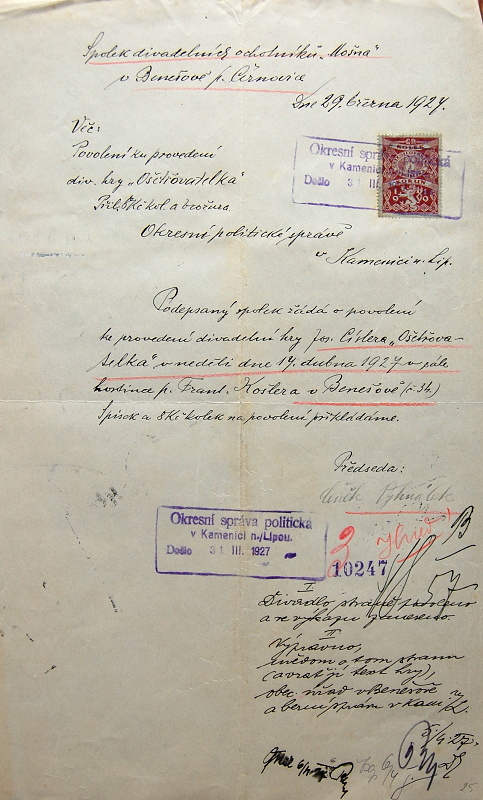 Spolek divadelních ochotníků „Mošna"
v Benešově p. Černovice
Dne 29. března 1927.
Věc:
Povolení ku provedení
div. hry „Ošetřovatelka"
Příl. 8 Kč kol. a brožura
Okresní politické správě
v Kamenici n. Lip.
Okresní správa politická
v Kamenici n./Lipou.
Došlo 31 III.
Podepsaný spolek žádá o povolení
ke provedení divadelní hry Jos. Cislera „Ošetřova-
telka" v neděli dne 17. dubna 1927 v sále
hostince p. Frant. Kostera v Benešově (č. 34.)
Spisek a 8 Kč kolek na povolení přikládáme.
Předseda:
Okresní správa politická
v Kamenici n./Lipou.
Došlo 31 III. 1927
3
10247
I
Divadlo straně povoleno
a ve výkazu zaneseno.
II
Výpravno,
uvědom o tom stranu
(a vrať jí text hry),
obec. úřad v Benešově
a berní správu v Kam. n/L.
5/4. 27.
25